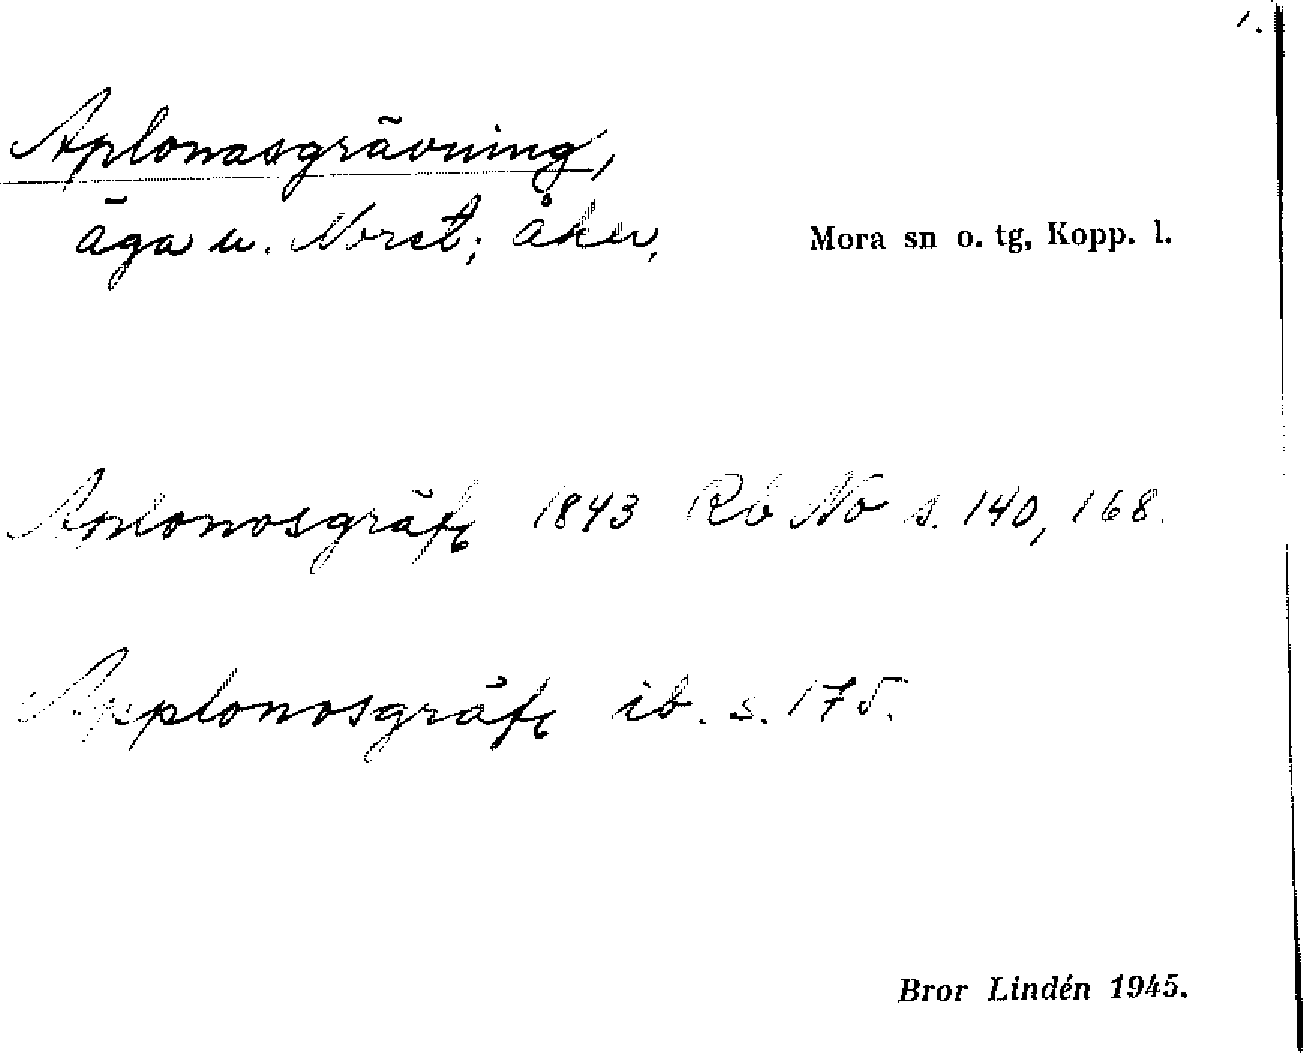 1.
Aplonasgrävning,
äga u. Noret; åker, Mora sn o. tg, Kopp. l.
Aplonosgräfn 1843 Rb No s. 140, 168.
Applonosgräfn ib. s. 175.
Bror Lindén 1945.